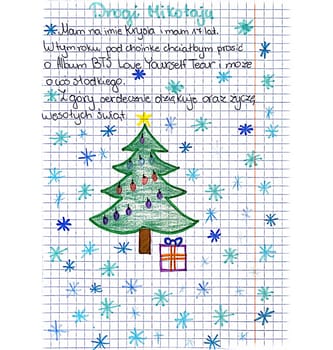 Drogi Mikołaju
Mam na imię Krysia i mam 17 lat.
W tym roku pod choinkę chciałbym prosić
o Album BTS Love Yourself Tear i może
coś słodkiego.
Z góry serdecznie dziękuje oraz życzę
wesołych świąt.